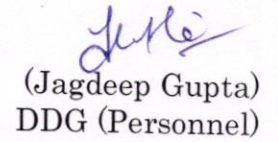 (Jagdeep Gupta)
DDG (Personnel)